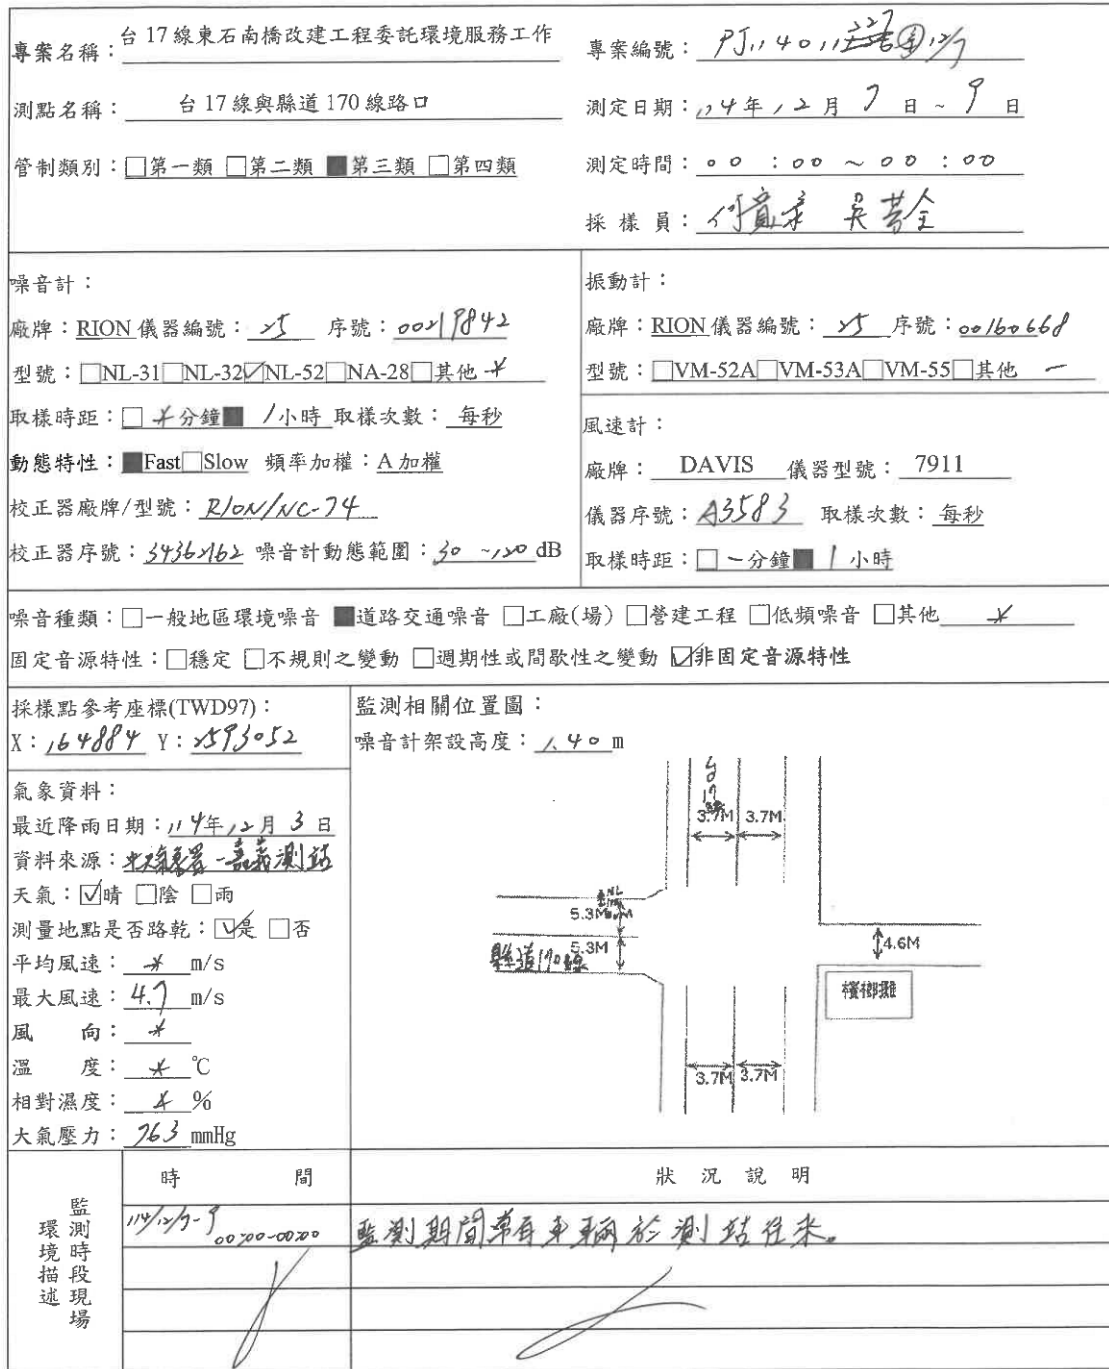 專案名稱：台 17 線東石南橋改建工程委託環境服務工作
專案編號：PJ11401 227 12/7
測點名稱：台 17 線與縣道 170 線路口
測定日期：114年12月 7 日 ~ 9 日
管制類別：□第一類 □第二類 ■第三類 □第四類
測定時間：00 :00 ~ 00 :00
採 樣 員：
噪音計：
廠牌：RION 儀器編號：25 序號：00219842
型號：□NL-31□NL-32☑NL-52□NA-28□其他
取樣時距：□ 分鐘■ 1小時 取樣次數：每秒
動態特性：■Fast□Slow 頻率加權：A 加權
校正器廠牌/型號：RION/NC-74
校正器序號：34362162 噪音計動態範圍：30 ~120 dB
振動計：
廠牌：RION 儀器編號：25 序號：00160668
型號：□VM-52A□VM-53A□VM-55□其他 一
風速計：
廠牌：DAVIS 儀器型號：7911
儀器序號：A3583 取樣次數：每秒
取樣時距：□一分鐘■ 1 小時
噪音種類：□一般地區環境噪音 ■道路交通噪音 □工廠(場) □營建工程 □低頻噪音 □其他
固定音源特性：□穩定 □不規則之變動 □週期性或間歇性之變動 ☑非固定音源特性
採樣點參考座標(TWD97)：
X：164884 Y：2593052
氣象資料：
最近降雨日期：114年12月 3 日
資料來源：中央氣象署-嘉義測站
天氣：☑晴 □陰 □雨
測量地點是否路乾：☑是 □否
平均風速： m/s
最大風速：4.7 m/s
風　　向：
溫　　度： ℃
相對濕度： %
大氣壓力：763 mmHg
監測相關位置圖：
噪音計架設高度：1.40 m
台17線
3.7M 3.7M
NL
5.3M
5.3M
縣道170線
4.6M
檳榔攤
3.7M 3.7M
監測時段現場環境描述
時　　間
狀 況 說 明
114/12/7-9 00:00-00:00
監測期間常有車輛於測站往來。